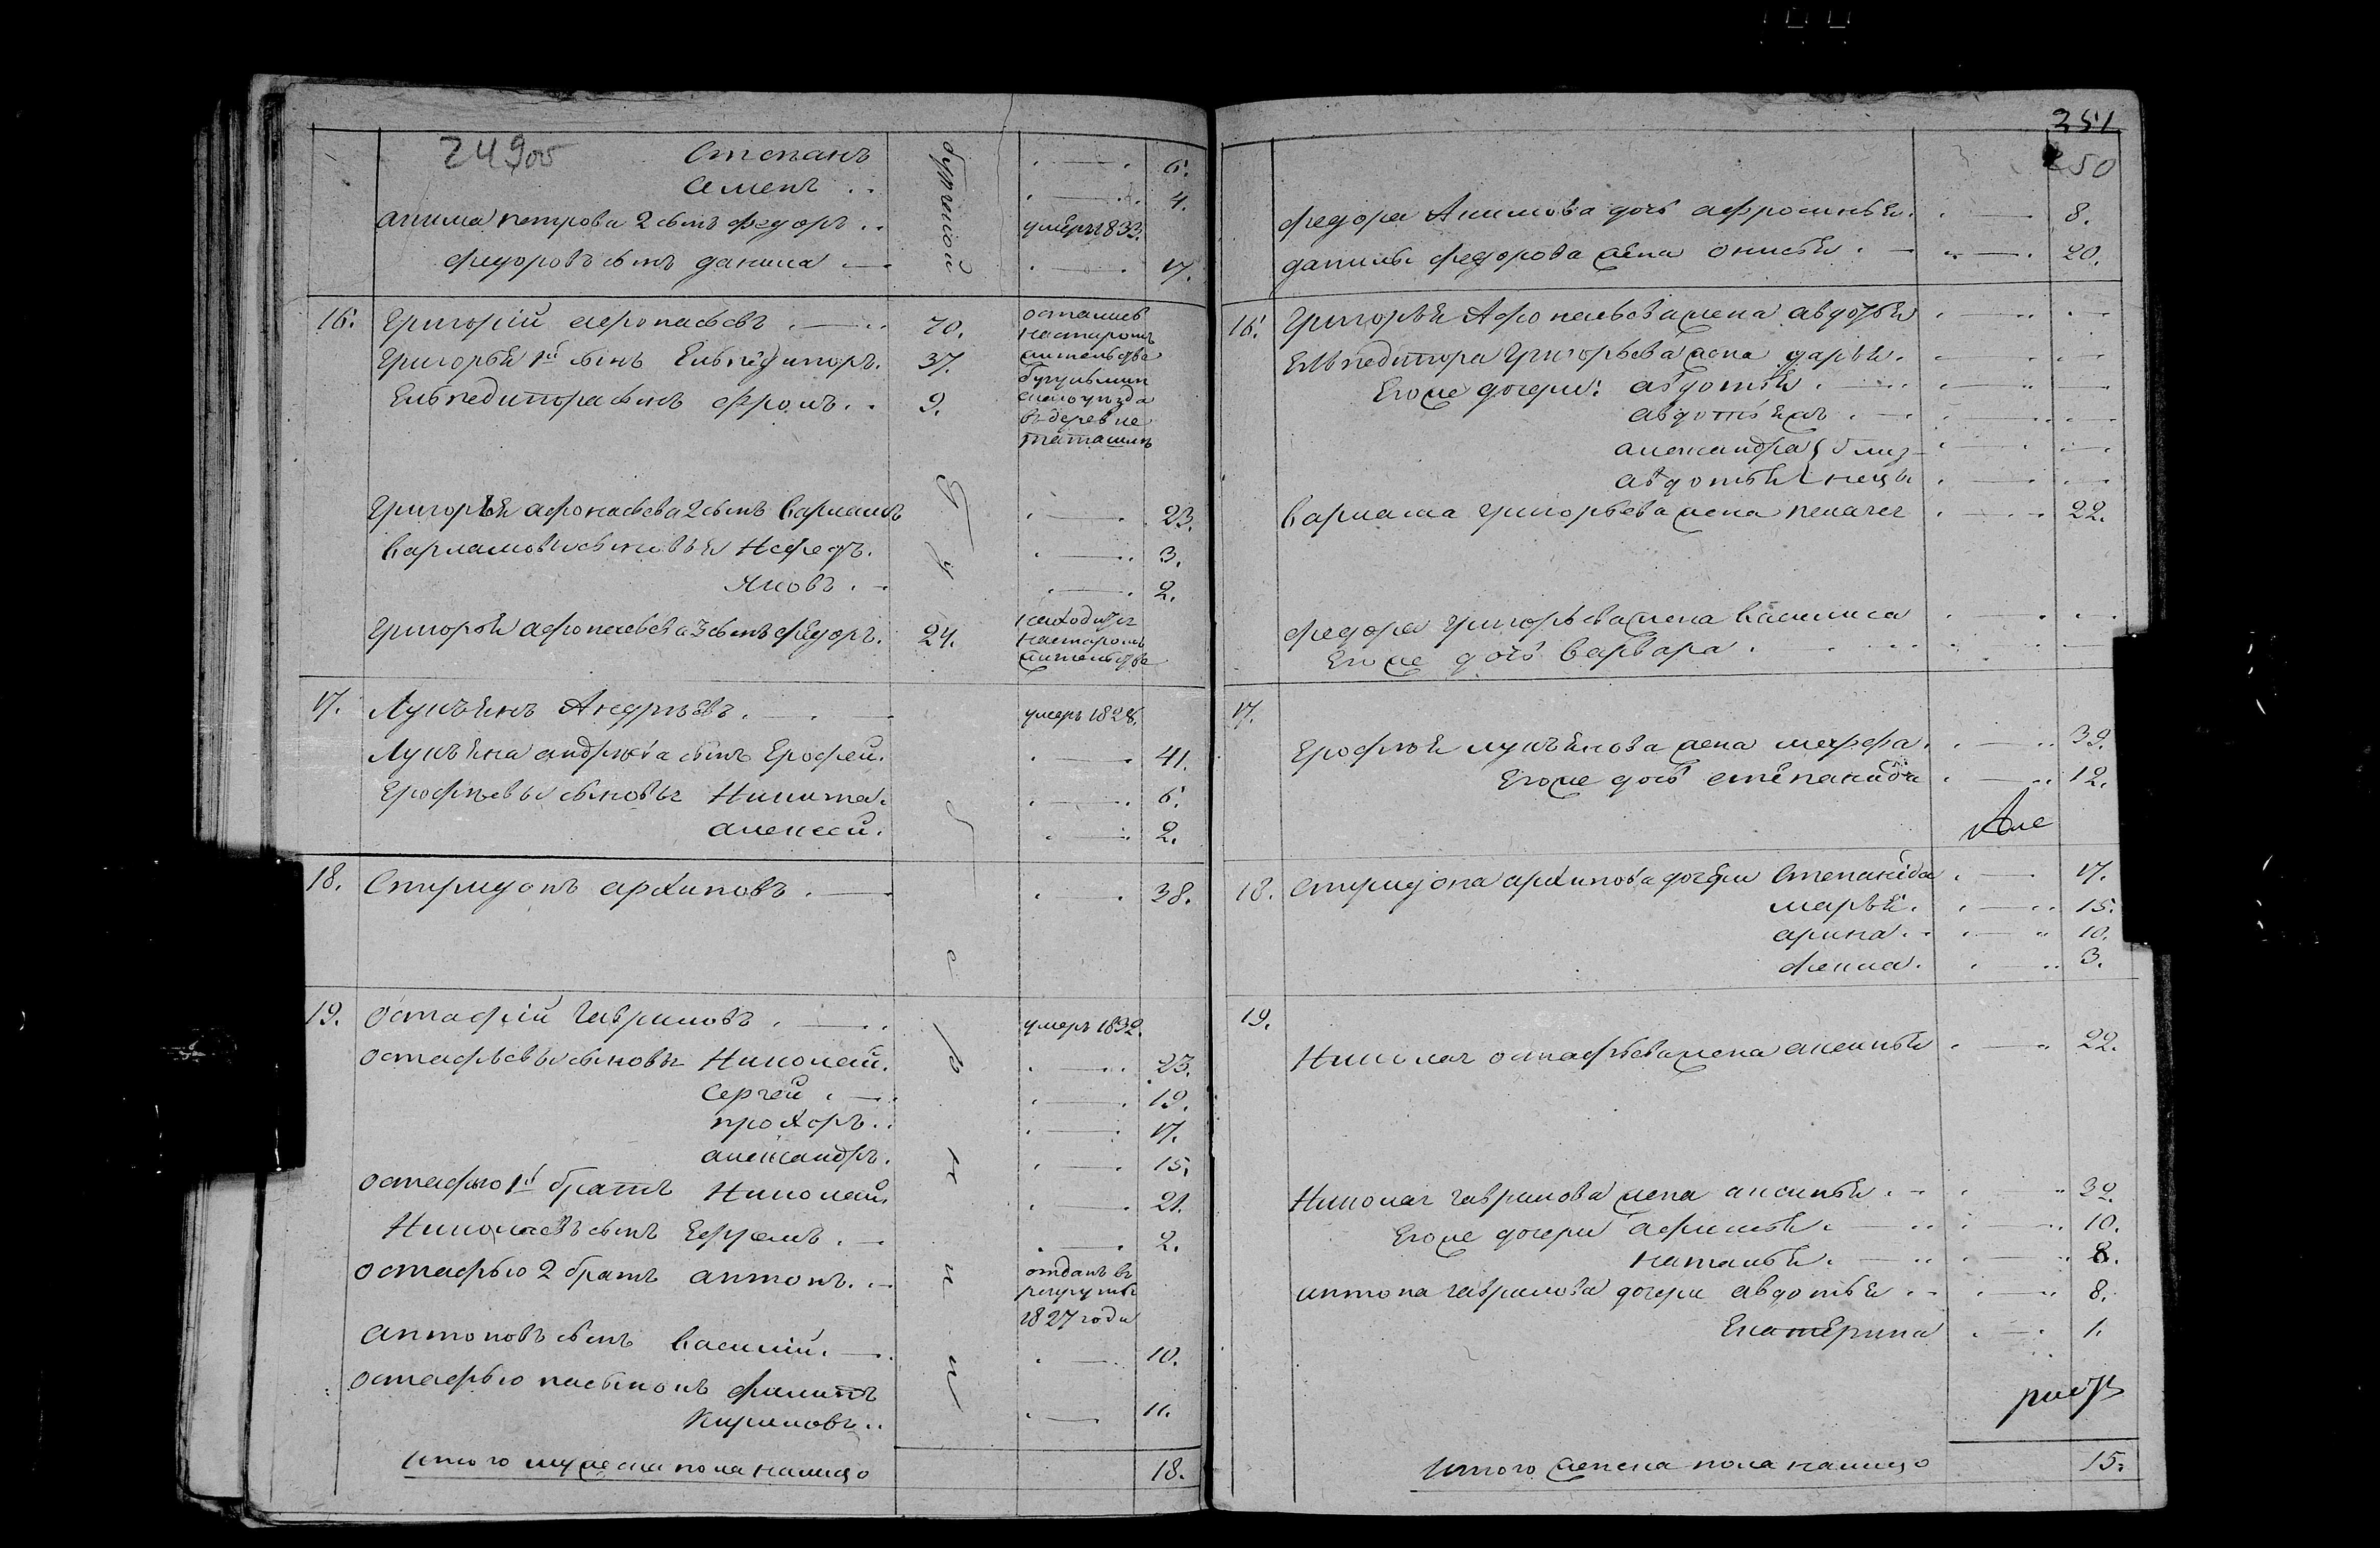 249об
Степанъ 6.
Семенъ 4.
акима петрова 2 сынъ федоръ умеръ 1833.
федоровъ сынъ данила 17.
16. Григорій афонасьевъ 70. остались
на старомъ
Григорья 1й сынъ Елпедифоръ. 37. жительстве
бугульмин
Елпедифора сынъ фролъ 9. скаго уезда
въ деревне
Григорья афонасьева 2 сынъ варламъ 23.
варламовы сыновья Нефедъ. 3.
Яковъ 2.
Григорья афонасьева 3 сынъ федоръ. 24. находитса
на старомъ
жительстве
17. Лукъянъ Андреевъ умеръ 1828.
Лукъяна андреева сынъ Ерофей. 41.
Ерофеевы сыновья Никита. 6.
алексей. 2.
18. Спиридонъ архиповъ 38.
19. Остафій Гавриловъ умеръ 1832.
Остафьевы сыновья Николай. 23.
Сергей 19.
прохоръ 17.
александръ. 15.
Остафью 1й братъ Николай. 21.
Николаевъ сынъ Ефремъ 2.
Остафью 2 братъ антонъ отданъ въ
рекруты
1827 года
антоновъ сынъ василий 10.
Остафью пасынокъ филипъ
Кириловъ 11.
Итого мужеска пола налицо 18.
251
250
федора Акимова дочь афросинья. 8.
данилы федорова жена онисья 20.
16. Григорья Афонасьева жена авдотья
Елпедифора Григорьева жена дарья.
Егоже дочери: авдотья
авдотья ж
александра близ
авдотья нецы
варлама Григорьева жена пелагея 22.
федора Григорьева жена василиса
Егоже дочь варвара
17.
Ерофея лукъянова жена марфа. 39.
Егоже дочь степанида 12.
18. спиридона архипова дочери степанида 17.
марья. 15.
арина 10.
фекла. 3.
19.
Николая остафьева жена аксинья 22.
Николая гаврилова жена аксинья 32.
Егоже дочери афимья 10.
наталья. 8.
антона гаврилова дочери авдотья 8.
Екатерина 1.
Итого женска пола налицо 15.